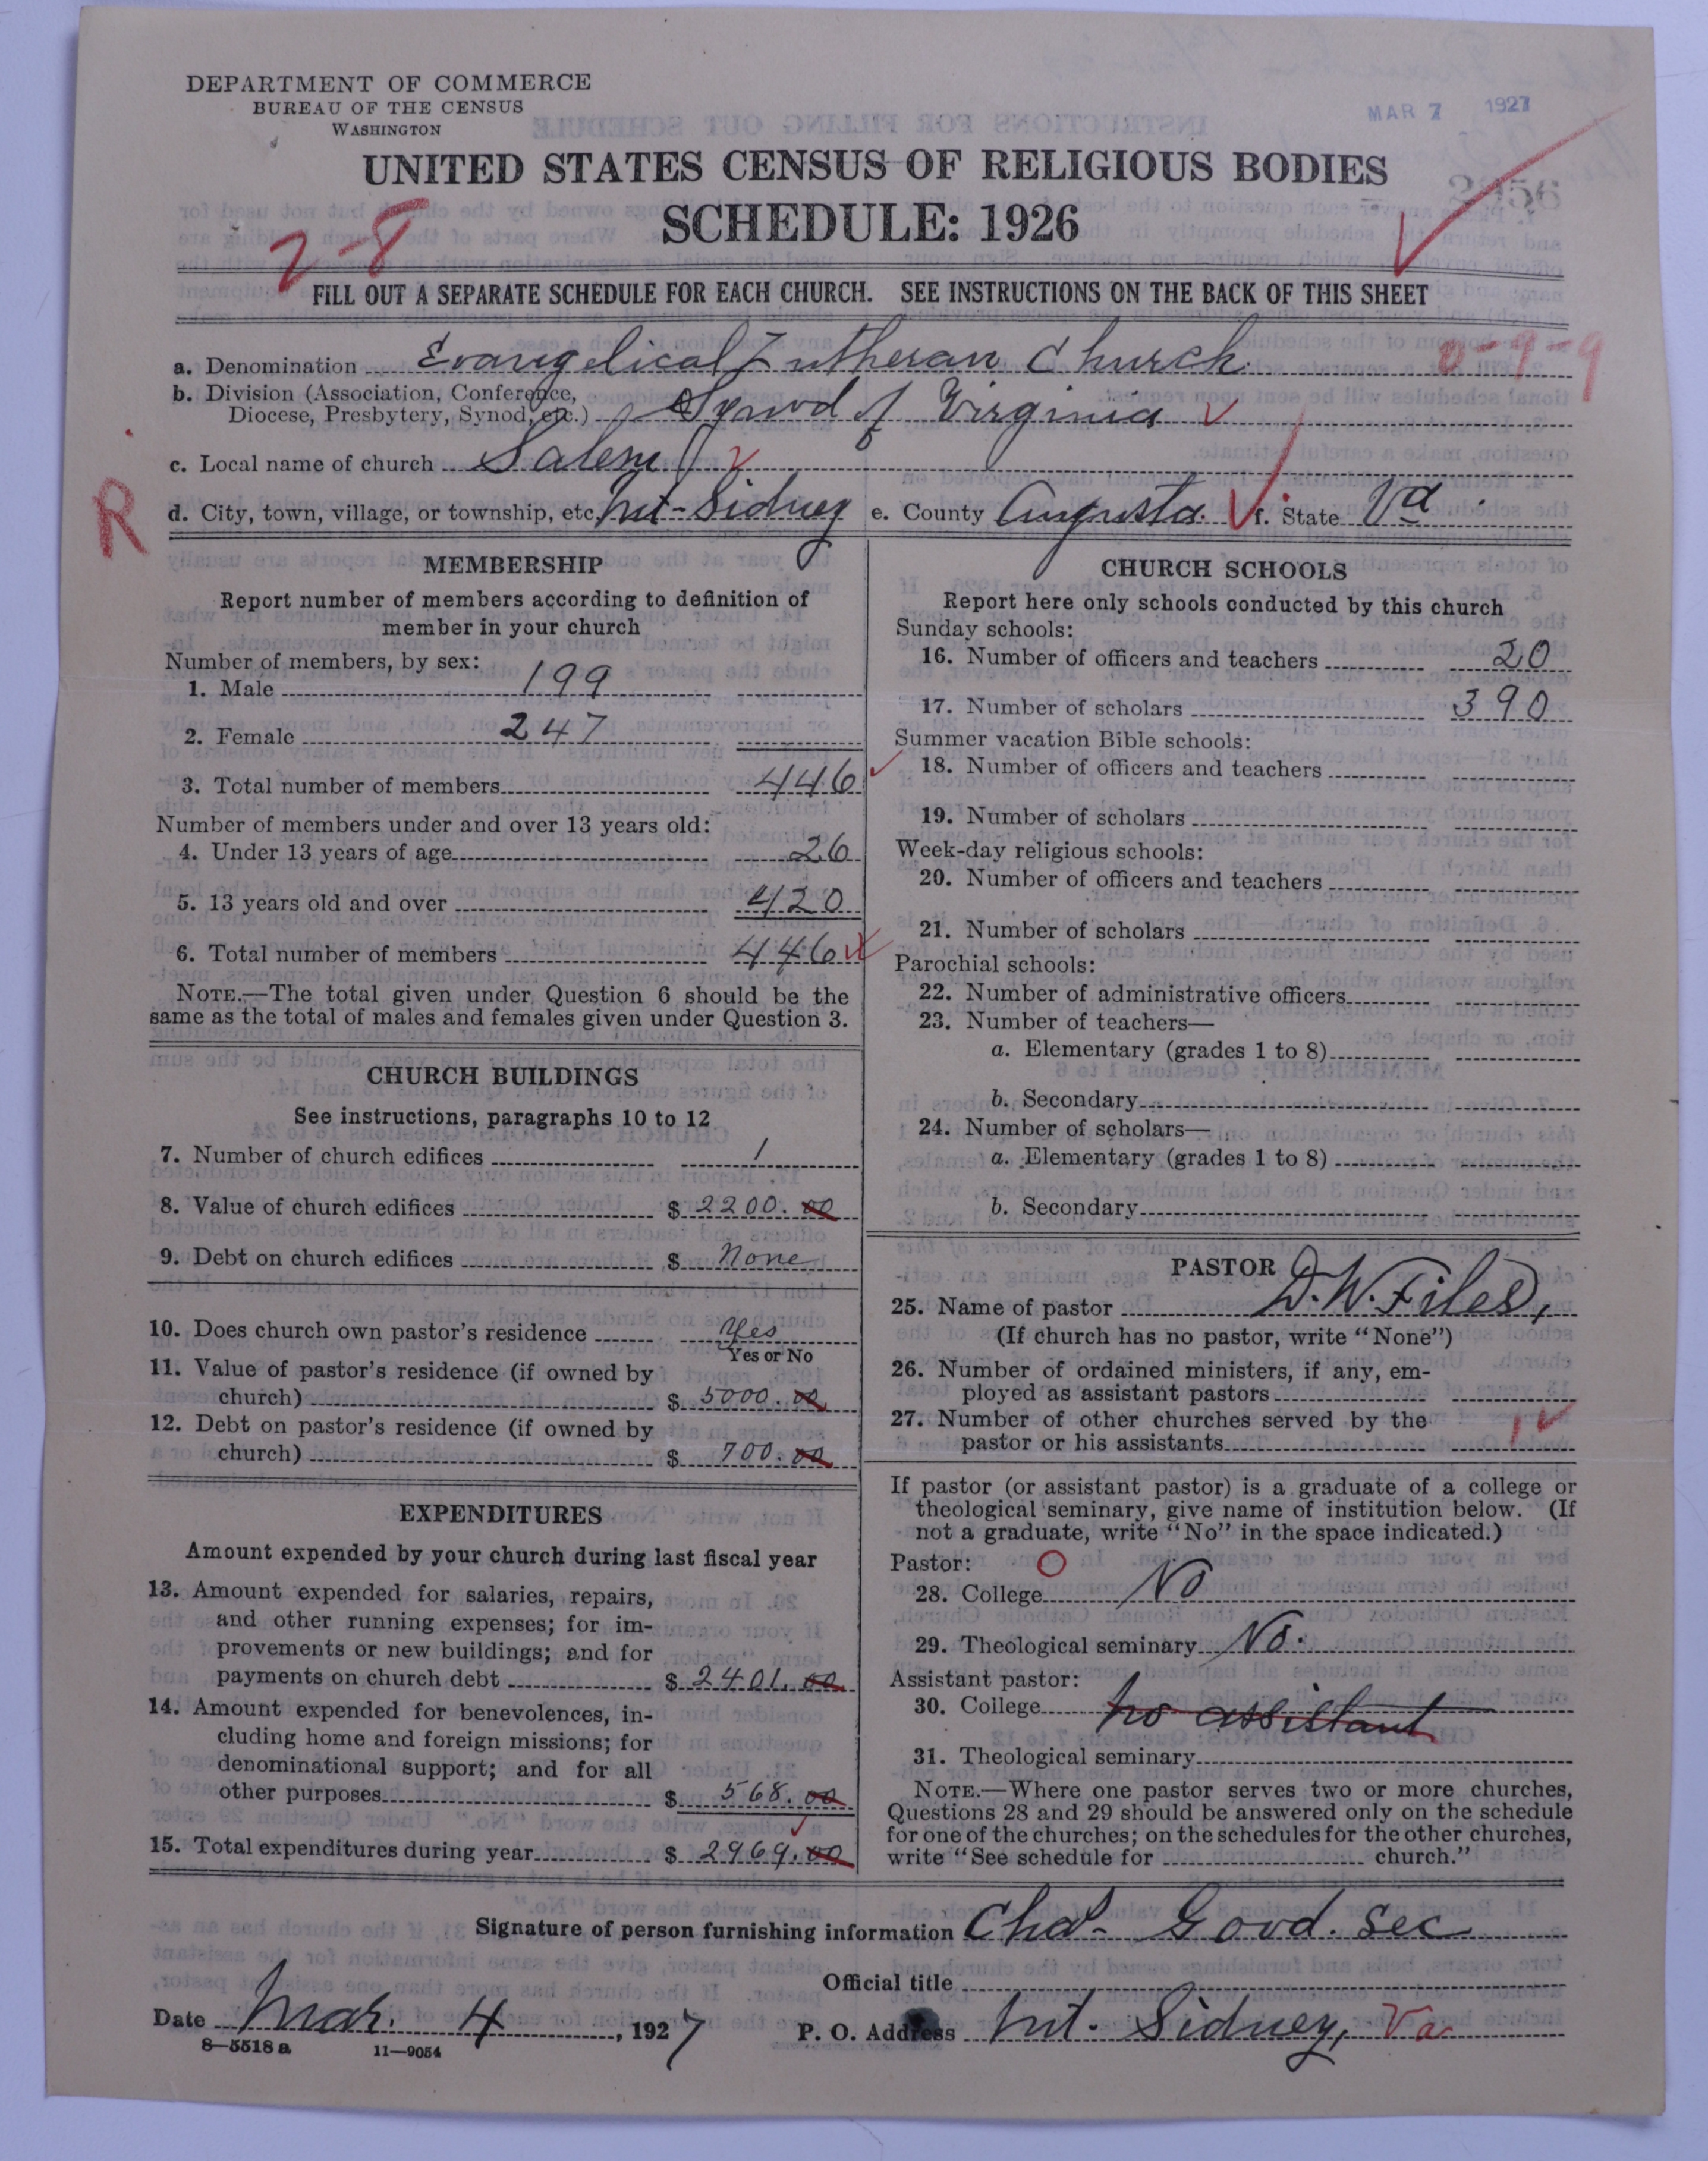 DEPARTMENT OF COMMERCE
BUREAU OF THE CENSUS
WASHINGTON
MAR 7 1927
UNITED STATES CENSUS OF RELIGIOUS BODIES
SCHEDULE: 1926
2-8
FILL OUT A SEPARATE SCHEDULE FOR EACH CHURCH. SEE INSTRUCTIONS ON THE BACK OF THIS SHEET
a. Denomination Evangelical Lutheran Church 0-9-9
b. Division (Association, Conference,
Diocese, Presbytery, Synod, etc.) Synod of Virginia
c. Local name of church Salem
R
d. City, town, village, or township, etc. Mt-Sidney e. County Augusta. f. State Va.
MEMBERSHIP
Report number of members according to definition of
member in your church
Number of members, by sex:
1. Male 199
2. Female 247
3. Total number of members 446
Number of members under and over 13 years old:
4. Under 13 years of age 26
5. 13 years old and over 420
6. Total number of members 446
NOTE.—The total given under Question 6 should be the
same as the total of males and females given under Question 3.
CHURCH BUILDINGS
See instructions, paragraphs 10 to 12
7. Number of church edifices 1
8. Value of church edifices $ 2200.00
9. Debt on church edifices $ None
10. Does church own pastor's residence Yes
Yes or No
11. Value of pastor's residence (if owned by
church) $ 5000.00
12. Debt on pastor's residence (if owned by
church) $ 700.00
EXPENDITURES
Amount expended by your church during last fiscal year
13. Amount expended for salaries, repairs,
and other running expenses; for im-
provements or new buildings; and for
payments on church debt $ 2401.00
14. Amount expended for benevolences, in-
cluding home and foreign missions; for
denominational support; and for all
other purposes $ 568.00
15. Total expenditures during year $ 2969.00
CHURCH SCHOOLS
Report here only schools conducted by this church
Sunday schools:
16. Number of officers and teachers 20
17. Number of scholars 390
Summer vacation Bible schools:
18. Number of officers and teachers
19. Number of scholars
Week-day religious schools:
20. Number of officers and teachers
21. Number of scholars
Parochial schools:
22. Number of administrative officers
23. Number of teachers—
a. Elementary (grades 1 to 8)
b. Secondary
24. Number of scholars—
a. Elementary (grades 1 to 8)
b. Secondary
PASTOR
25. Name of pastor D. W. Files,
(If church has no pastor, write "None")
26. Number of ordained ministers, if any, em-
ployed as assistant pastors
27. Number of other churches served by the
pastor or his assistants 1
If pastor (or assistant pastor) is a graduate of a college or
theological seminary, give name of institution below. (If
not a graduate, write "No" in the space indicated.)
Pastor: O
28. College No
29. Theological seminary No.
Assistant pastor:
30. College no assistant
31. Theological seminary
NOTE.—Where one pastor serves two or more churches,
Questions 28 and 29 should be answered only on the schedule
for one of the churches; on the schedules for the other churches,
write "See schedule for church."
Signature of person furnishing information Chas- Good. Sec
Official title
Date Mar. 4, 1927 P. O. Address Mt. Sidney, Va
8—5518 a 11—9054